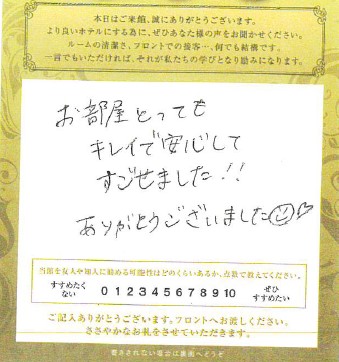 本日はご来館、誠にありがとうございます。
より良いホテルにする為に、ぜひあなた様の声をお聞かせください。
ルームの清潔さ、フロントでの接客…、何でも結構です。
一言でもいただければ、それが私たちの学びとなり励みになります。
お部屋とっても
キレイで安心して
すごせました!!
ありがとうございました
当館を友人や知人に勧める可能性はどのくらいあるか、点数で教えてください。
すすめたく
ない
0 1 2 3 4 5 6 7 8 9 10
ぜひ
すすめたい
ご記入ありがとうございます。フロントへお渡しください。
ささやかなお礼をさせていただきます。
書ききれない場合は裏面へどうぞ